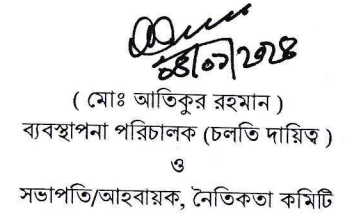 ০৪/০৭/২০২৪
( মোঃ আতিকুর রহমান )
ব্যবস্থাপনা পরিচালক (চলতি দায়িত্ব )
ও
সভাপতি/আহবায়ক, নৈতিকতা কমিটি